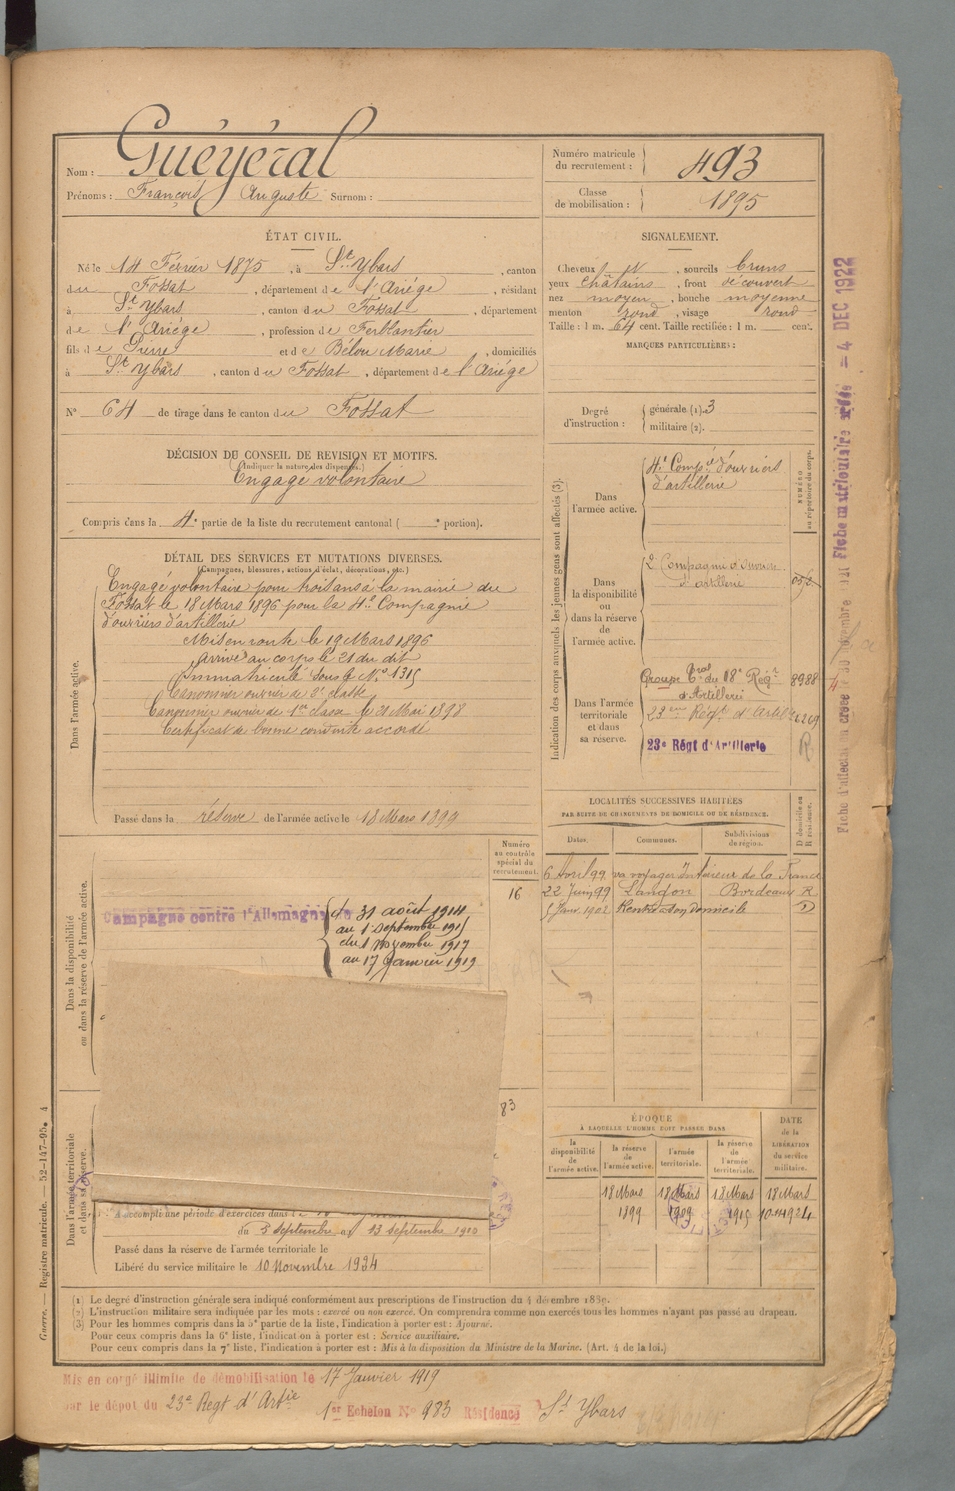 Nom : Guéyéral
Prénoms : François Auguste Surnom :
Numéro matricule du recrutement : 493
Classe de mobilisation : 1895
ÉTAT CIVIL.
Né le 14 Février 1875, à St. Ybars, canton
du Fossat, département de l'Ariége, résidant
à St. Ybars, canton du Fossat, département
de l'Ariége, profession de Ferblantier
fils de Pierre et de Bélou Marie, domiciliés
à St. Ybars, canton du Fossat, département de l'Ariége
N° 64 de tirage dans le canton du Fossat
SIGNALEMENT.
Cheveux et, sourcils bruns
yeux châtains, front découvert
nez moyen, bouche moyenne
menton rond, visage rond
Taille : 1 m. 64 cent. Taille rectifiée : 1 m. cent.
MARQUES PARTICULIÈRES :
Degré d'instruction : générale (1). 3
militaire (2).
DÉCISION DU CONSEIL DE REVISION ET MOTIFS.
(Indiquer la nature des dispenses.)
Engagé volontaire
Compris dans la 4e partie de la liste du recrutement cantonal ( e portion).
DÉTAIL DES SERVICES ET MUTATIONS DIVERSES.
(Campagnes, blessures, actions d'éclat, décorations, etc.)
Dans l'armée active.
Engagé volontaire pour trois ans à la mairie du
Fossat le 18 Mars 1896 pour la 4e Compagnie
d'ouvriers d'artillerie
Mis en route le 19 Mars 1896
Arrivé au corps le 21 du dit
Immatriculé sous le N° 1315
Canonnier ouvrier de 2e classe
Canonnier ouvrier de 1re classe le 21 Mai 1898
Certificat de bonne conduite accordé
Passé dans la réserve de l'armée active le 18 Mars 1899
Indication des corps auxquels les jeunes gens sont affectés (3).
NUMÉRO au répertoire du corps.
Dans l'armée active.
4e Compie d'ouvriers
d'artillerie
Dans la disponibilité ou dans la réserve de l'armée active.
2e Compagnie d'ouvriers
d'artillerie
Dans l'armée territoriale et sa réserve.
Groupe Toral du 18e Regt 8988
d'Artillerie
23eme Régt d'Artie 26269
23e Régt d'Artillerie R
LOCALITÉS SUCCESSIVES HABITÉES
PAR SUITE DE CHANGEMENTS DE DOMICILE OU DE RÉSIDENCE.
Dates. Communes. Subdivisions de région. D domicile ou R résidence.
6 Avril 99 va voyager Intérieur de la France
22 Juin 99 Langon Bordeaux R
5 Janv. 1902 Rentré à son Domicile D
Numéro au contrôle spécial du recrutement.
16
Dans la disponibilité ou dans la réserve de l'armée active.
Campagne contre l'Allemagne du 31 août 1914
au 1 septembre 1915
du 1 novembre 1917
au 17 Janvier 1919
83
Dans l'armée territoriale et dans sa réserve.
A accompli une période d'exercices dans le
du 5 septembre au 13 septembre 1910
Passé dans la réserve de l'armée territoriale le
Libéré du service militaire le 10 Novembre 1924
ÉPOQUE
À LAQUELLE L'HOMME DOIT PASSER DANS
DATE de la LIBÉRATION du service militaire.
la disponibilité de l'armée active. la réserve de l'armée active. l'armée territoriale. la réserve de l'armée territoriale.
18 Mars 18 Mars 18 Mars 18 Mars
1899 1909 1915
(1) Le degré d'instruction générale sera indiqué conformément aux prescriptions de l'instruction du 4 décembre 1889.
(2) L'instruction militaire sera indiquée par les mots : exercé ou non exercé. On comprendra comme non exercés tous les hommes n'ayant pas passé au drapeau.
(3) Pour les hommes compris dans la 5e partie de la liste, l'indication à porter est : Ajourné.
Pour ceux compris dans la 6e liste, l'indication à porter est : Service auxiliaire.
Pour ceux compris dans la 7e liste, l'indication à porter est : Mis à la disposition du Ministre de la Marine. (Art. 4 de la loi.)
Mis en congé illimité de démobilisation le 17 Janvier 1919
par le dépôt du 23e Regt d'Artie 1er Echelon N° 983 Résidence St Ybars
Guerre. — Registre matricule. — 52-147-95. 4
4 DEC 1922